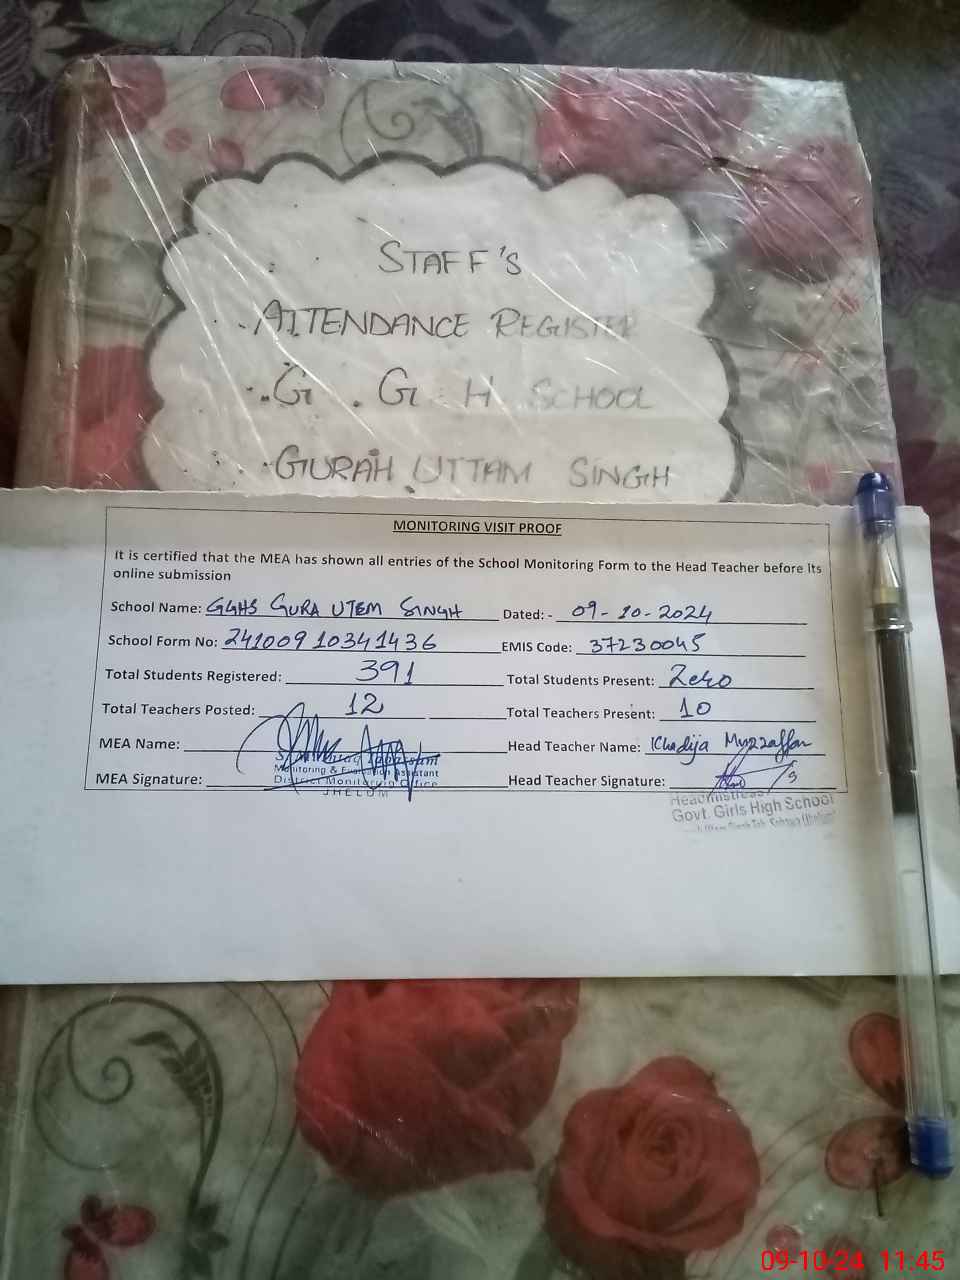 STAFF'S
ATTENDANCE REGISTER
G. G H SCHOOL
GURAH UTTAM SINGH
MONITORING VISIT PROOF
It is certified that the MEA has shown all entries of the School Monitoring Form to the Head Teacher before its
online submission
School Name: GGHS GURA UTEM SINGH Dated: - 09-10-2024
School Form No: 24100910341436 EMIS Code: 37230045
Total Students Registered: 391 Total Students Present: Zero
Total Teachers Posted: 12 Total Teachers Present: 10
MEA Name: Head Teacher Name: Khadija Muzzaffar
Monitoring & Evaluation Assistant
MEA Signature: District Monitoring Office Head Teacher Signature:
JHELUM
Headmistress
Govt. Girls High School
09-10-24 11:45